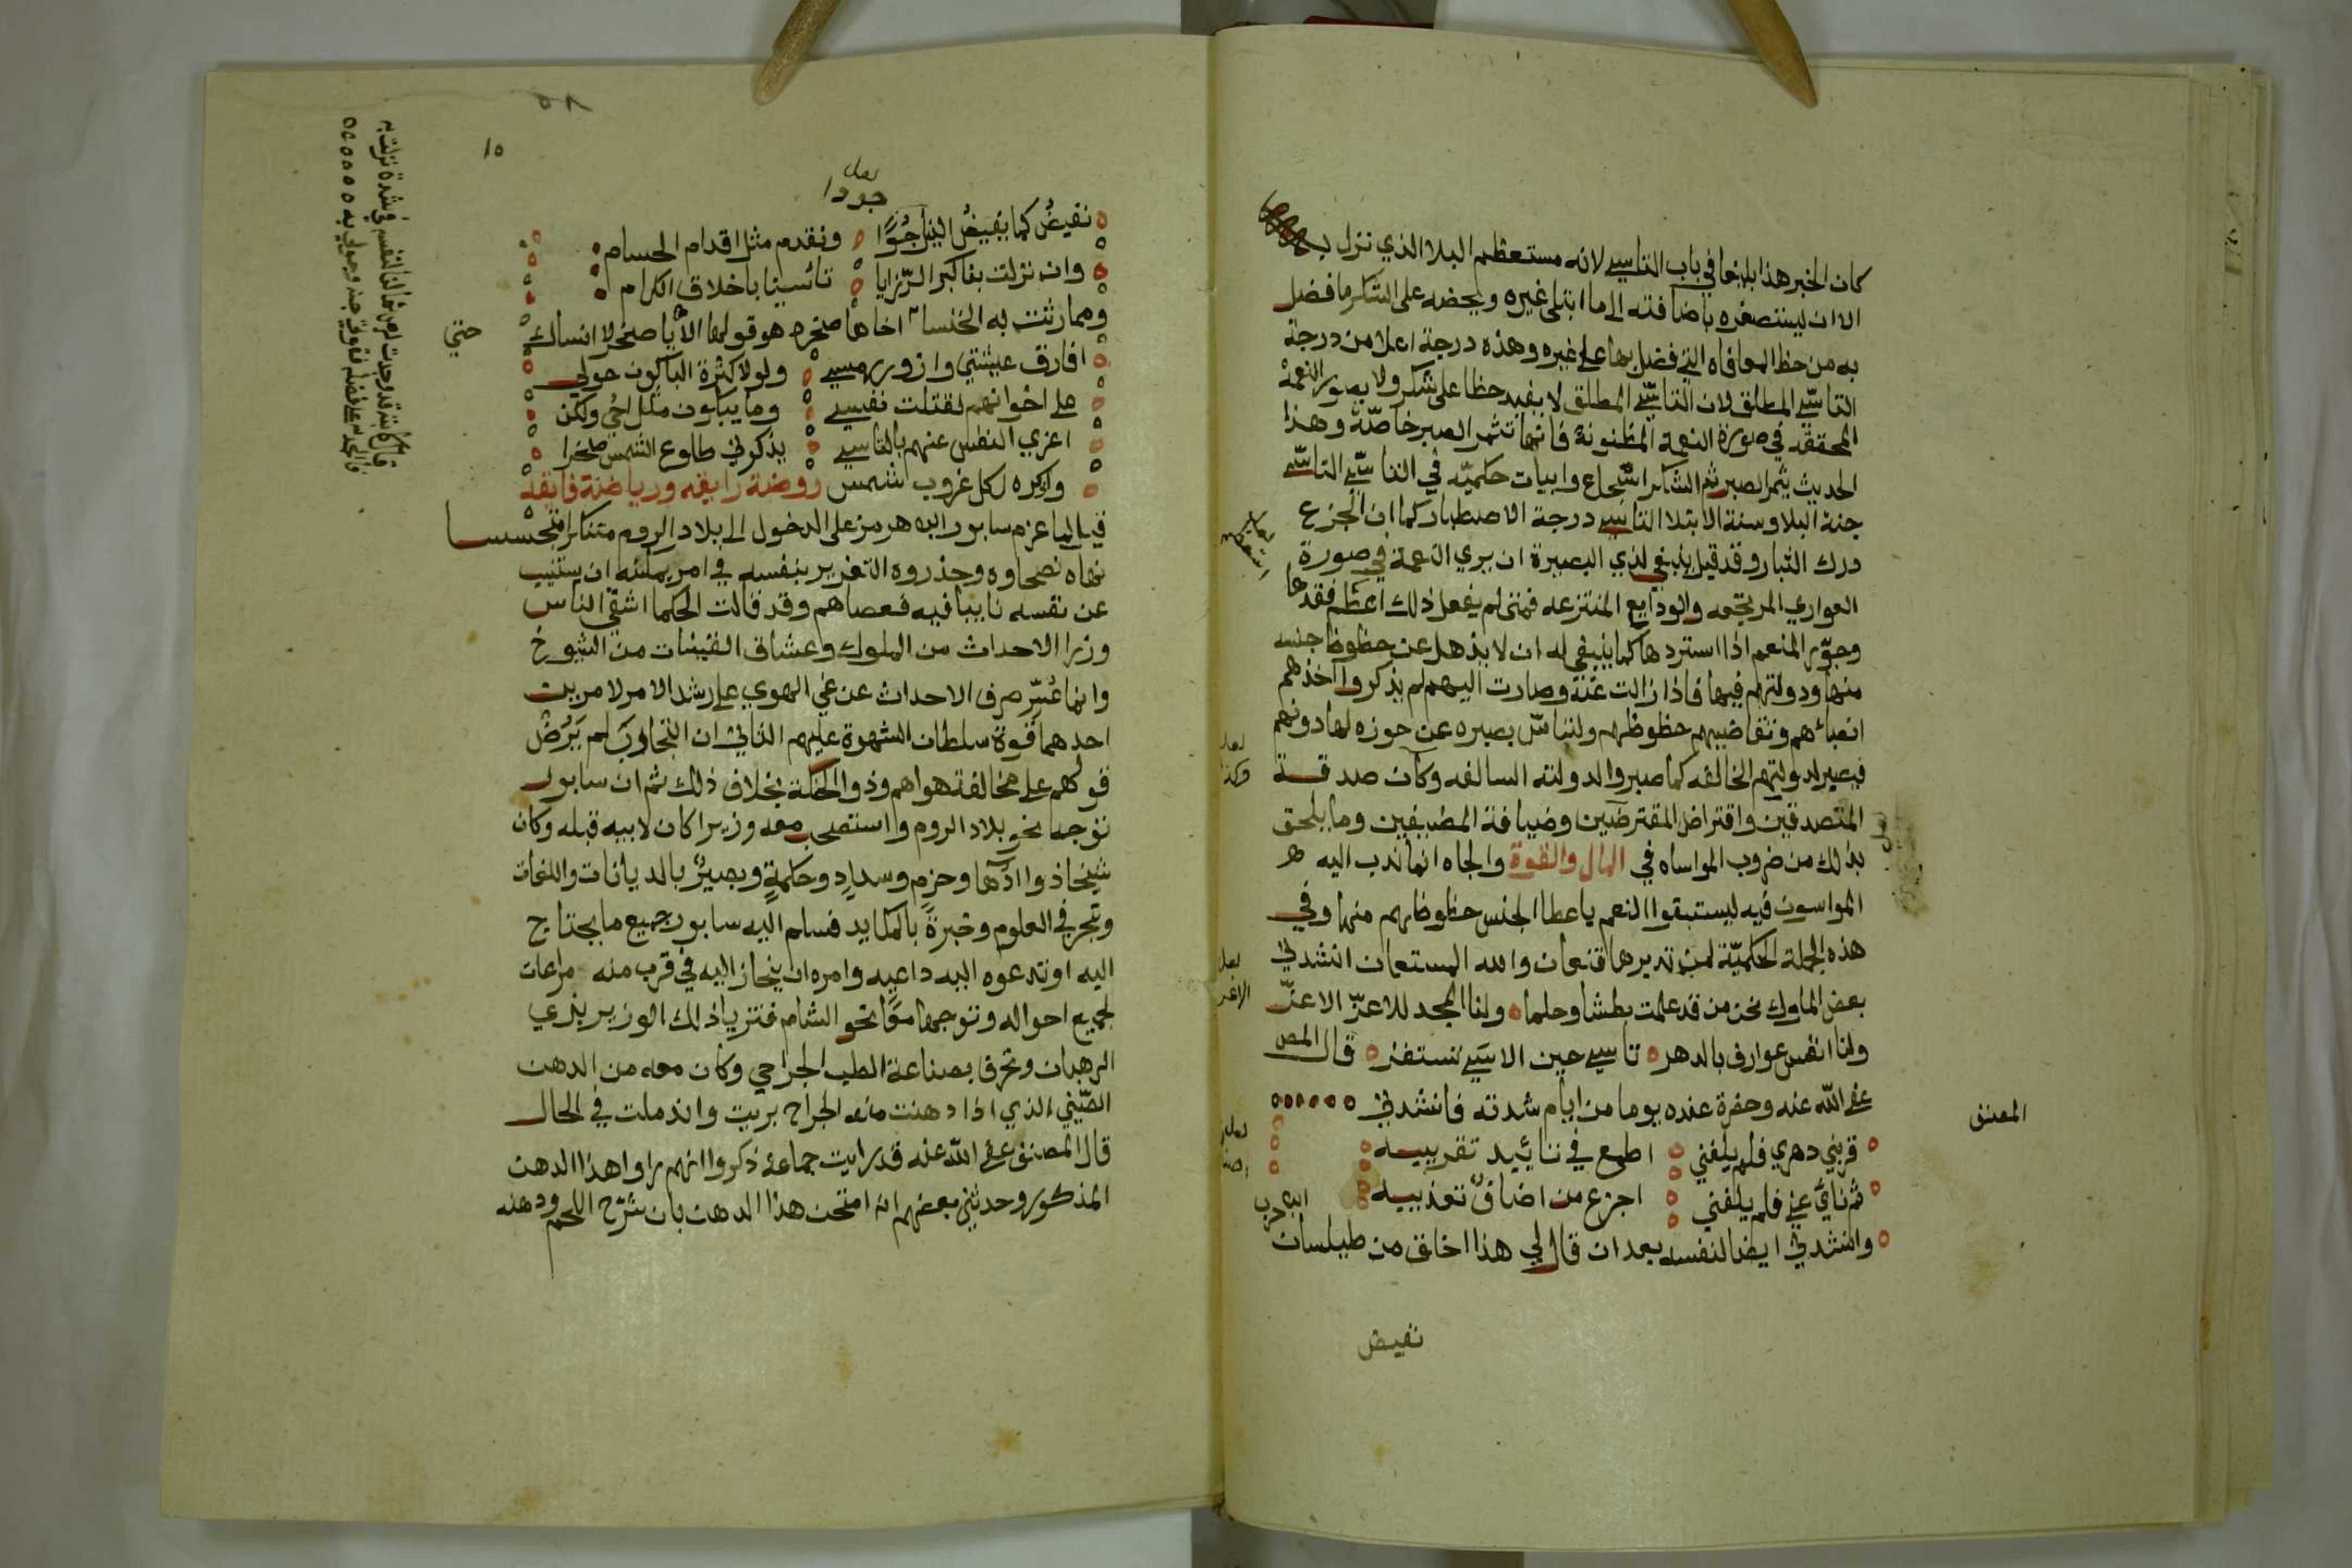 كان الخبر هذا بليغا في باب التاسي لانه مستعظم البلا الذي نزل به
الا ان ليستصغره باضافته الى ما ابتلى غيره ويحضه على الشكر ما فضل
به من حظ المعافاه التي فضل بها على غيره وهذه درجة اعلا من درجة
التاسّي المطلق لان التاسّي المطلق لا يفيد حظا على شكر ولا يصور النعمة
المحققه في صورة النعمة المظنونة فانها تثمر الصبر خاصّة وهذا
الحديث يثمر الصبر ثم الشكر اسجاع وابيات حكميّه في التاسّي التاسّي
جنة البلا وسنة الابتلا التاسي درجة الاصطبار كما ان الجزع
درك التبار وقد قيل ينبغي لذي البصيرة ان يرى النعمة في صورة
العواري المرتجعه والودايع المنتزعه فمتى لم يفعل ذلك اعظم فقدها
وجوّر المنعم اذا استردها كما ينبغي له ان لا يذهل عن حظوظ جنسه
منها ودولتهم فيها فاذا زالت عنه وصارت اليهم لم يذكر وا اخذهم
انصباهم وتقاضيهم حظوظهم ولتاسّ بصبره عن حوزه لها دونهم
فيصير لدولتهم الخالفه كما صبروا لدولته السالفه وكان صدقة
المتصدقين واقتراض المقترضين وضيافة المضيفين وما يلحق
بذلك من ضروب المواساه في المال والقوة والجاه انما ندب اليه
المواسون فيه ليستبقوا النعم باعطا الجنس حظوظهم منها وفي
هذه الجملة الحكميّة لمن تدبرها قنعان والله المستعان انشدني
بعض الملوك نحن من قد علمت بطشا وحلما ولنا المجد للاعزّ الاعزّ
ولنا انفس عوارف بالدهر تاسي حين الاسي تستفز قال المص
عفى الله عنه وحضرة عنده يوما من ايام شدته فانشدني
قربني دهري فلم يلفني اطمع في تائيد تقريبه
ثم نائي عني فلم يلفني اجزع من اضاف تعذيبه
وانشدني ايضا لنفسه بعد ان قال لي هذا اخلق من طيلسان
ابن حرب
المصنف
نفيض
لعل جودا
نفيضُ كما يفيضُ النيل جُوًا ونقدم مثل اقدام الحسام
وان نزلت بنا كبر الرّزايا تائسينا باخلاق الكرام
ومما رثت به الخنسا اخاها صخره هو قولها الا يا صخر لا انساك
حتي
افارق عيشتي وازور رمسي ولولا كثرة الباكون حولي
على اخوانهم لقتلت نفسي وما يبكون مثل اخي ولكن
اعزي النفس عنهم بالتاسي يذكرني طلوع الشمس صخرا
واذكره لكل غروب شمس روضة رايقه ورياضة فايقة
قيل لما عزم سابور ابن هرمز على الدخول الى بلاد الروم متنكرا متجسسا
نهاه نصحاوه وحذروه التغرير بنفسه في امر يمكنه ان يستنيب
عن نفسه نايبا فيه فعصاهم وقد قالت الحكما اشقى الناس
وزرا الاحداث من الملوك وعشاق الفتيات من الشيوخ
وانما عُسّر صرف الاحداث عن غي الهوي على رشد الامر لامرين
احدهما قوة سلطان الشهوة عليهم الثاني ان التجارب لم يَرُضْ
قولهم على مخالفة هواهم وذو الحنكة بخلاف ذلك ثم ان سابور
توجه نحو بلاد الروم واستصحب معه وزيرا كان لابيه قبله وكان
شيخا ذو ادهاً وحزمٍ وسدادٍ وحكمةٍ وبصيرٌ بالديانات واللغات
وتبحر في العلوم وخبرةً بالمكايد فسلم اليه سابور جميع ما يحتاج
اليه او تدعوه اليه داعيه وامره ان ينحاز اليه في قرب منه مراعات
لجميع احواله وتوجها معًا نحو الشام فتزيا ذلك الوزير بزي
الرهبان وتحرف بصناعة الطب الجراحي وكان معه من الدهن
الصّيني الذي اذا دهنت منه الجراح بريت واندملت في الحال
قال المصنف عفى الله عنه قد رايت جماعة ذكروا انهم راوا هذا الدهن
المذكور وحدثني بعضهم انه امتحن هذا الدهن بان شرّح اللحم ودهنه
١٥
٥٨